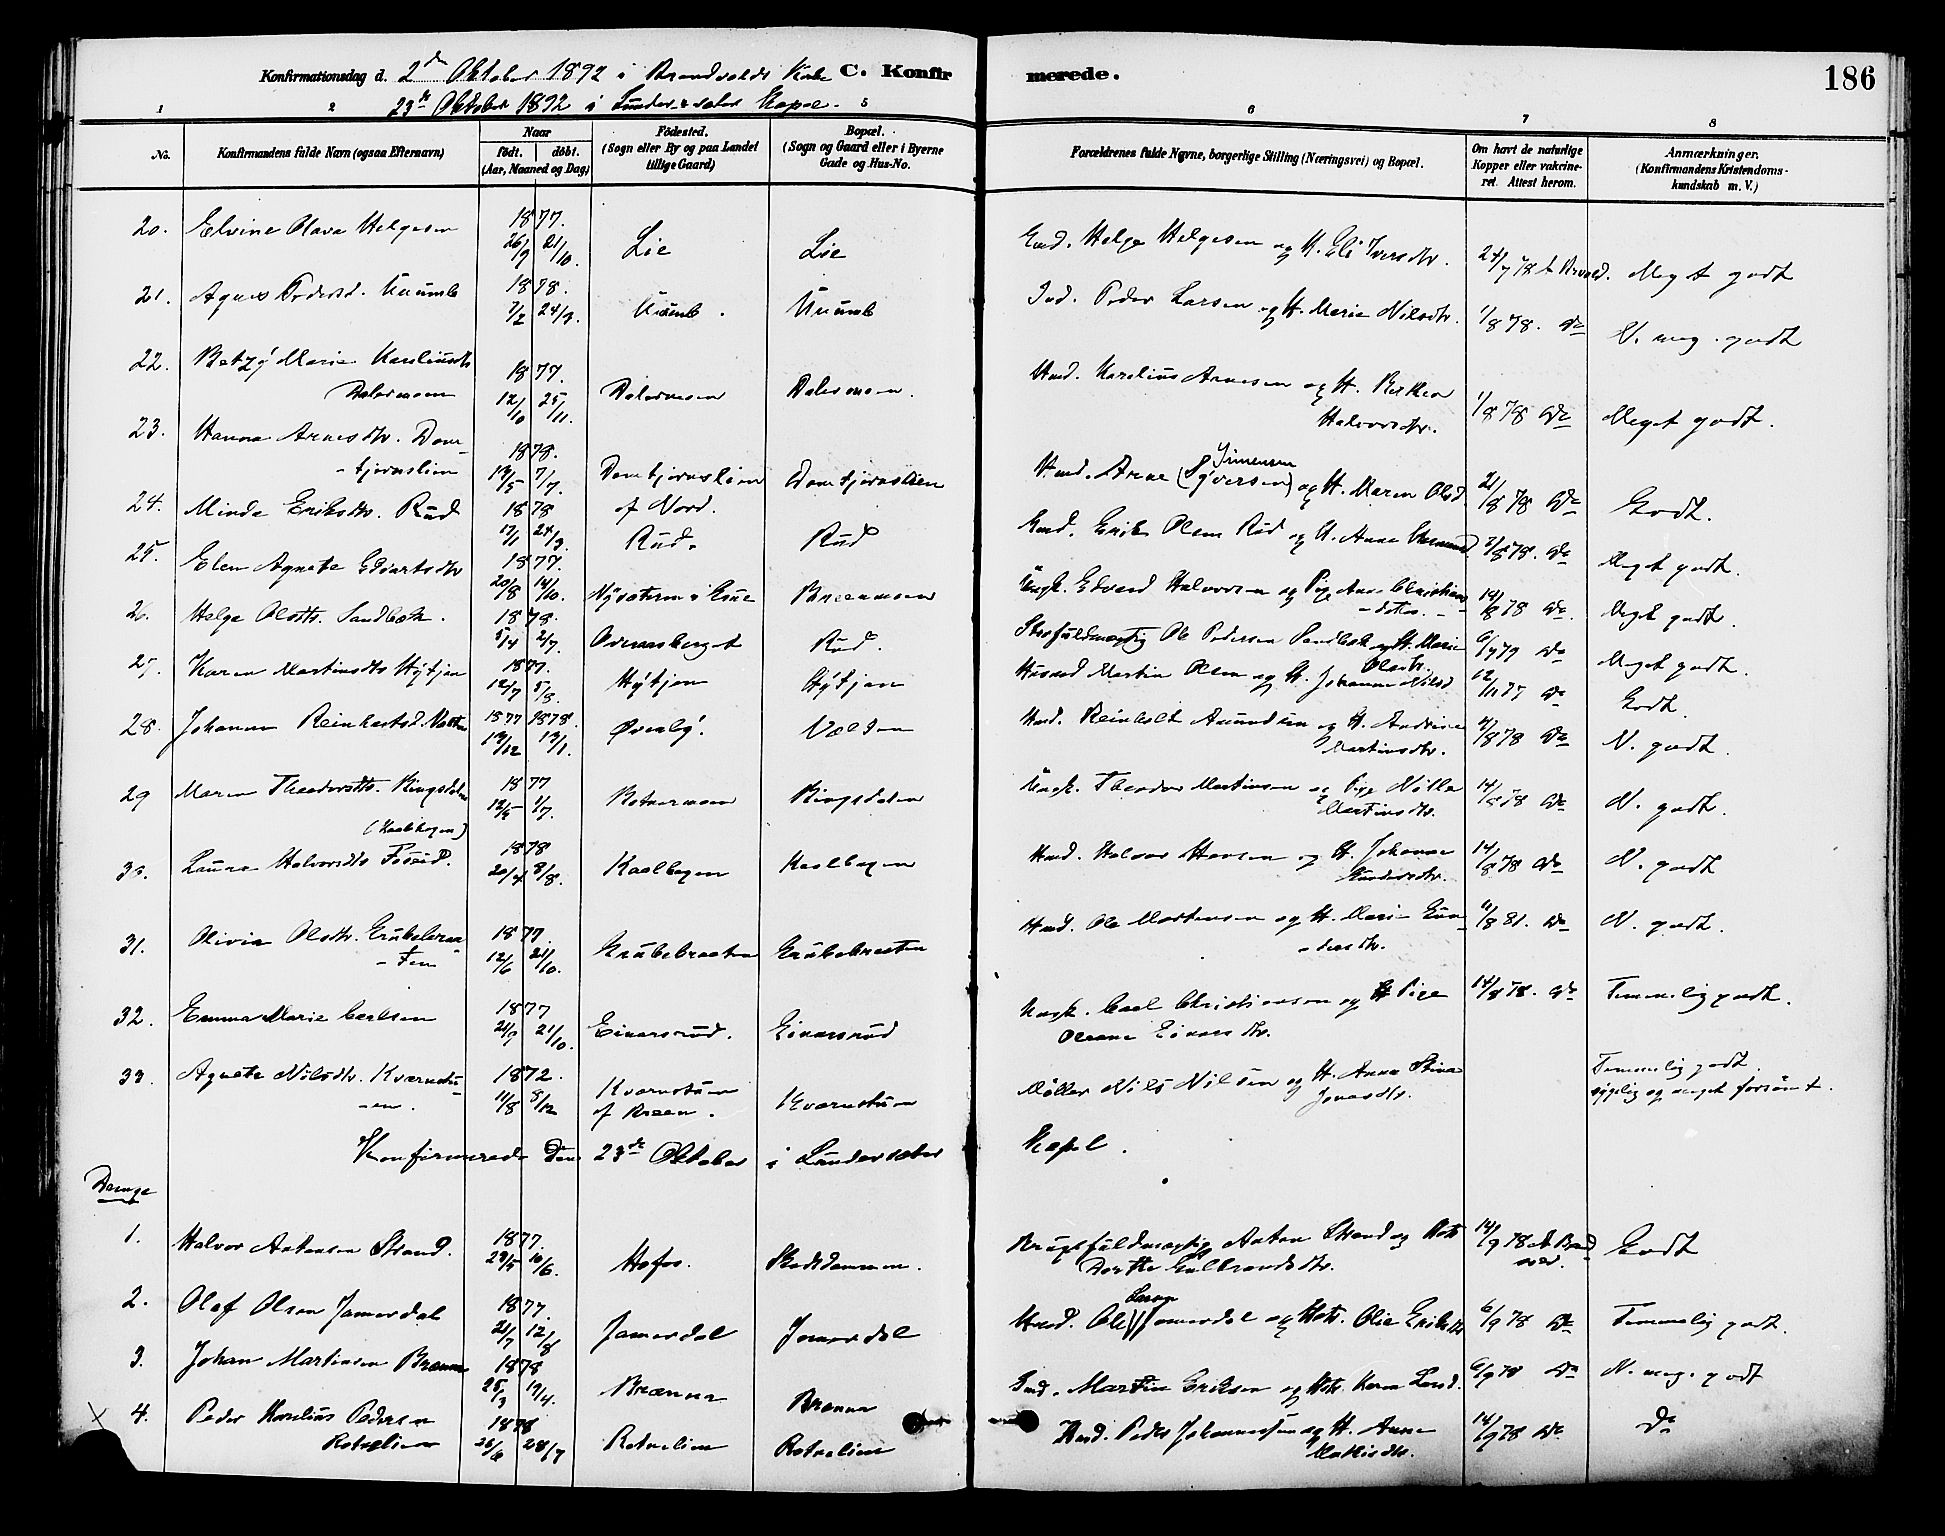 Konfirmationsdag d. 2den Oktober 1892 i Brandvolds Kirke C. Konfirmerede. 186
23de Oktober 1892 i Lundersæter Kapel.
1 2 5 6 7 8
No. Konfirmandens fulde Navn (ogsaa Efternavn) Naar født. døbt. (Aar, Maaned og Dag) Fødested. (Sogn eller By og paa Landet tillige Gaard) Bopæl. (Sogn og Gaard eller i Byerne Gade og Hus-No. Forældrenes fulde Navne, borgerlige Stilling (Næringsvei) og Bopæl. Om havt de naturlige Kopper eller vakcineret. Attest herom. Anmærkninger. (Konfirmandens Kristendomskundskab m. V.)
20. Elvine Olava Helgesen 1877. 26/9 21/10. Lie Lie Gmd. Helge Helgesen og H. Eli Iversdtr. 24/7 78 Meget godt
21. Agnes Pedersd. 1878. 7/2 24/3. Ind. Peder Larsen og H. Marie Nilsdtr. 1/8 78. Do N. meg. godt
22. Betzy Marie Karliusdtr
Dalermoen 1877. 12/10 25/11. Dalermoen Dalermoen. Hmd. Karelius Arnesen og H. Berthea
Halvorsdtr. 1/8 78 Do Meget godt.
23. Hanna Arnesdtr. Dom-
-tjernslien 1878. 19/5 7/7. Domtjernslien
af Nord. Domtjernslien Hmd. Arne (Syversen) Simensen og H. Maren Olsd. 21/8 78 Do Godt.
24. Minda Eriksdtr. Rud 1878 17/1 24/3. Rud. Rud Gmd. Erik Olsen Rud og H. Anne 7/8 78. Do Meget godt.
25. Elen Agnete Edvartsdtr 1877. 20/8 14/10. Breenmoen Ungk. Edvard Halvorsen og Pige Anne Christians-
-datter. 14/8 78 Do Meget godt.
26. Helga Olsdtr. Sandbæk. 1878. 5/4 2/7. Overnsberget Rud. Ole Pedersen Sandbæk og H. Marie
Olsdtr. 6/9 79 Do Meget godt.
27. Karen Martinsdtr Hytjen 1877. 12/7 5/8. Hytjen Hytjen Husmd Martin Olsen og H. Johanne Nilsd. 12/11 77 Do Godt.
28. Johanne Reinholtsd. 1877 1878. 19/12 13/1. Øverby. Hmd. Reinholt Amundsen og H. Andrine
Martinsdtr. 4/8 78 Do N. godt.
29 Maren Theodorsdtr. Ringsdalen 1877 12/5 1/7. Rotnermoen Ringsdalen Ungk. Theodor Martinsen og Pige
Martinsdtr. 14/8 78 Do N. godt.
(Kaalhagen)
30. Laura Halvorsdtr Fossed. 1878 20/4 8/8. Kaalhagen Kaalhagen Hmd. Halvor Hansen og H. Johanne
Gundersdtr. 14/8 78 Do N. godt
31. Olivia Olsdtr. Grubebraa-
-ten 1877. 12/6 21/10. Grubebraaten Grubebraaten Hmd. Ole Mortensen og H. Marie Gun-
-dersdtr. 4/8 81. Do N. godt.
32. Emma Marie Carlsen 1877 21/9 21/10. Einarsrud. Einarsrud Ungk. Carl Christiansen og Pige
Oleane Einarsdtr. 14/8 78. Do Temmelig godt.
33. Agnete Nilsdtr. Kværnstu-
-en. 1872. 11/8 8/12 Kværnstuen
af Breen. Kværnstuen Møller Nils Nilsen og H. Anna Stina
Jonasdtr. Temmelig godt
sygelig og meget forsømt.
Konfirmerede Den 23de Oktober i Lundersæter Kapel.
Drenge
1. Halvor Antonsen Strand. 1877. 29/5 10/6. Hofos. Skotdammen. Brugsfuldmægtig Anton Strand og Hstr
Dorthe Gulbrandsdtr. 14/9 78 Godt
2. Olaf Olsen Jamerdal 1877. 21/7 12/8 Jamerdal Jamerdal Hmd. Ole Larsen Jamerdal og Hstr. Olia Eriksdtr 6/9 78 Do Temmelig godt.
3. Johan Martinsen Brænna 1878 25/3 19/4. Brænna Brænna Gmd. Martin Eriksen og Hstr. Karen Larsd. 6/9 78 Do N. meg. godt
4. Peder Karelius Pedersen
Rotnelien 1878 26/6 28/7 Rotnelien Rotnelien Hmd. Peder Johannessen og H. Anne
Mathisdtr. 14/9 78 Do Do